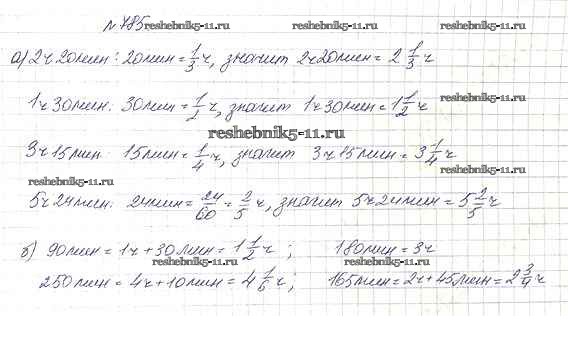 №785 reshebnik5-11.ru reshebnik5-11.ru reshebnik5-11.ru
а) 2ч 20мин: 20мин = 1/3 ч, значит 2ч20мин = 2 1/3 ч
reshebnik5-11.ru
1ч 30мин: 30мин = 1/2 ч, значит 1ч30мин = 1 1/2 ч
reshebnik5-11.ru
3ч 15мин: 15мин = 1/4 ч, значит 3ч15мин = 3 1/4 ч
reshebnik5-11.ru reshebnik5-11.ru
5ч24мин: 24мин = 24/60 = 2/5 ч, значит 5ч24мин = 5 2/5 ч
б) 90мин = 1ч + 30мин = 1 1/2 ч; 180мин = 3ч
reshebnik5-11.ru reshebnik5-11.ru
250мин = 4ч + 10мин = 4 1/6 ч; 165мин = 2ч + 45мин = 2 3/4 ч